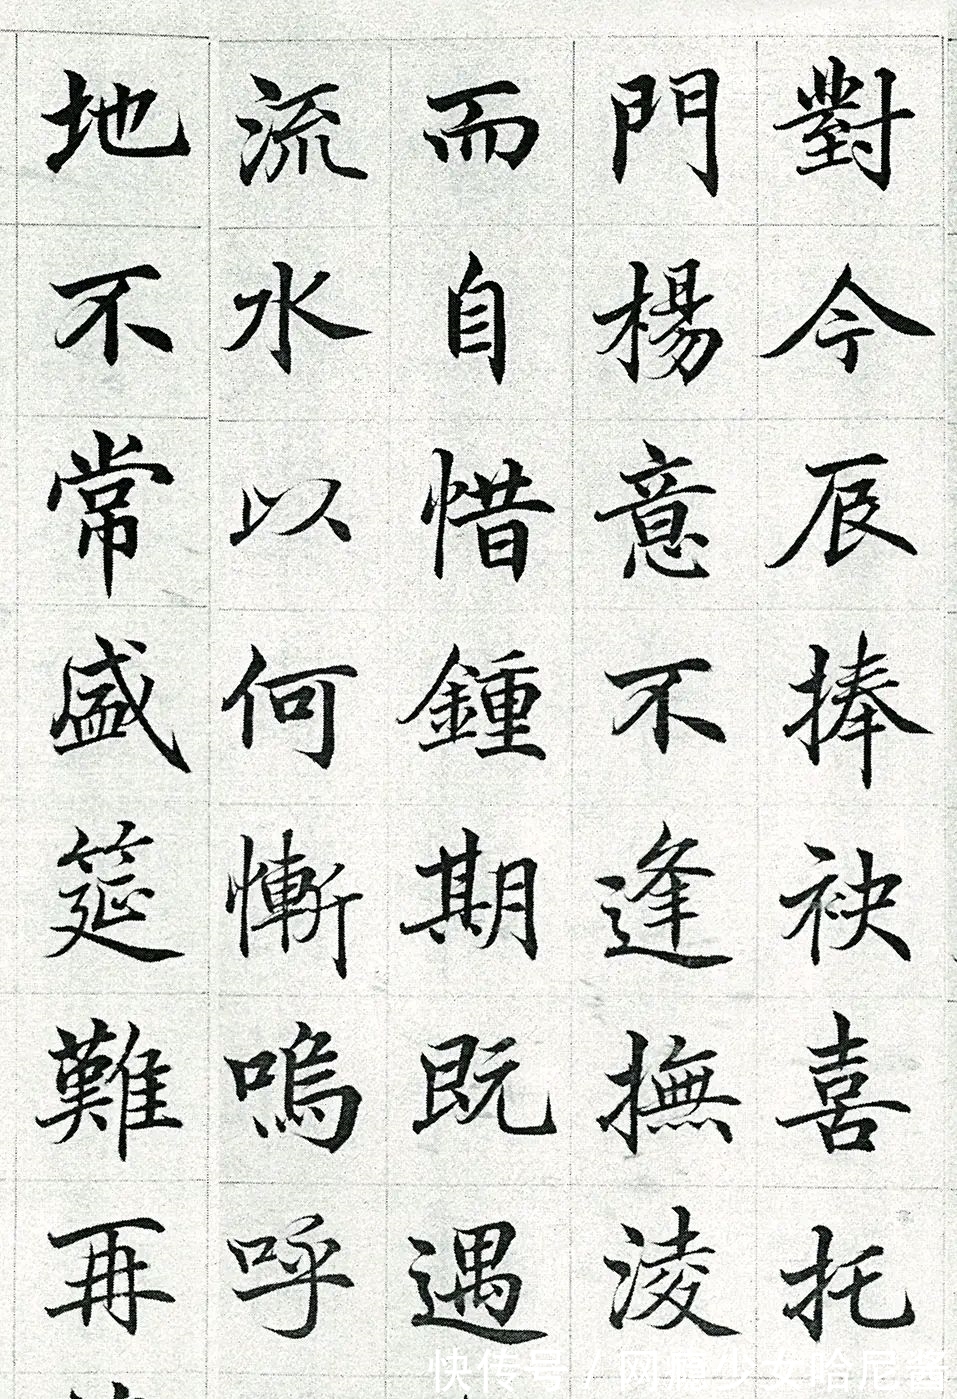 對今辰捧袂喜托
門楊意不逢撫淩
而自惜鍾期既遇
流水以何慚嗚呼
地不常盛筵難再
快传号/